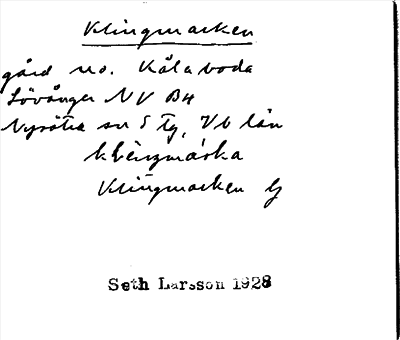 Klingmarken
gård no. Kålaboda
Lövånger NV B4
Nysätra sn S Tg, Vb län
Klingmarken Gj
Seth Larsson 1928